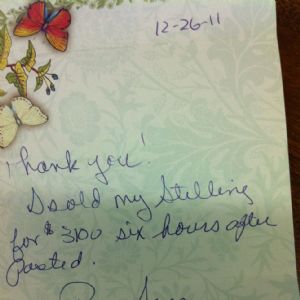 12-26-11
Thank you!
I sold my Stelling
for $3100 six hours after
Posted.